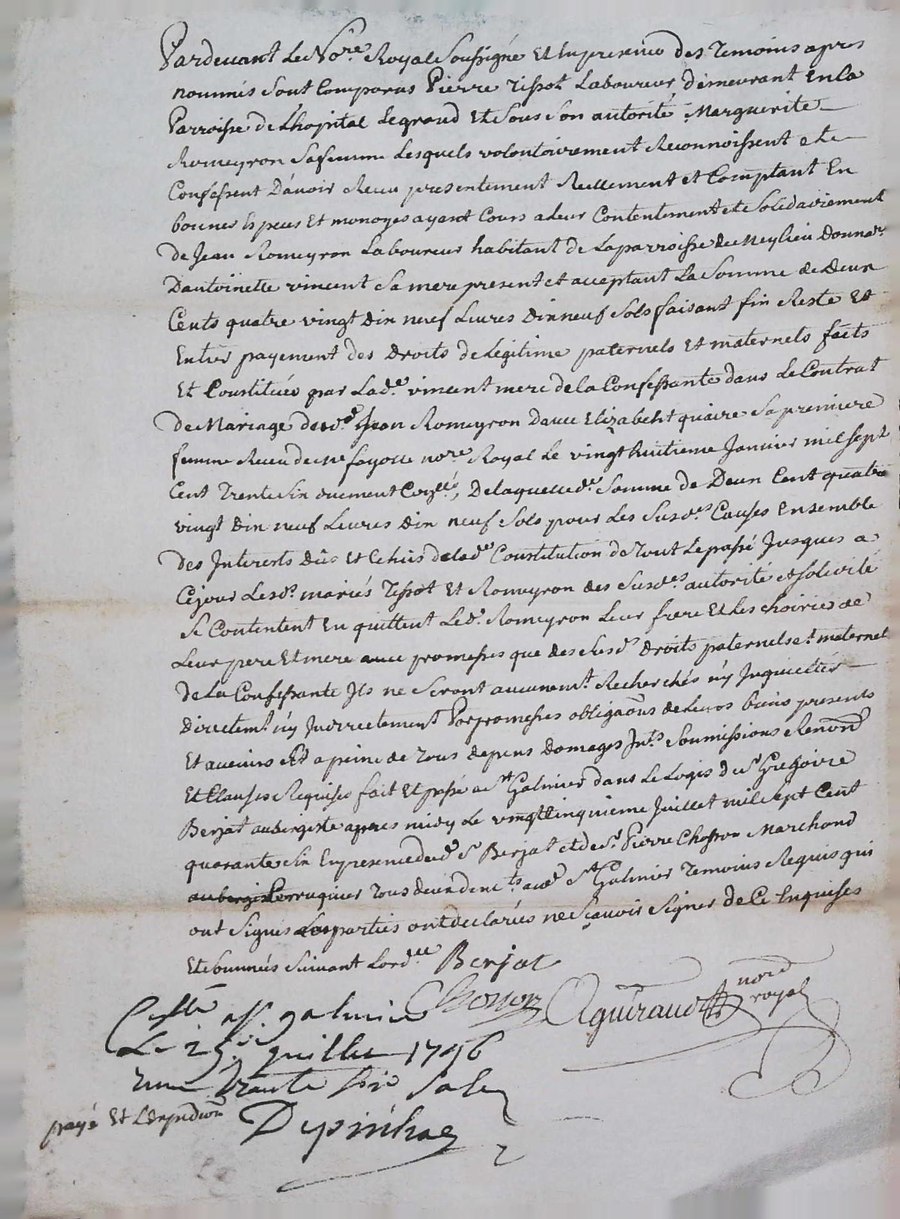 Pardevant Le No.re Royal Soussigné Et En presence des Temoins apres
nommés Sont Comparus Pierre Tissot Laboureur demeurant En La
Parroisse de L'hopital Legrand Et Sous Son autorité Marguerite
Romeyron Safemme Lesquels volontairement Reconnoissent et
Confessent D'avoir Recu presentement Reellement et Comptant En
bonnes Especes Et monoyes ayant Cours a leur Contentement et Solidairement
de Jean Romeyron Laboureur habitant de Laparroisse de Meylieu Donna.re
Dantoinette vincent Sa mere present et acceptant La Somme de Deux
Cents quatre vingt Dix neuf Livres Dix neuf Sols faisant fin Reste Et
Entier payement des Droits de Légitime paternels Et maternels faits
Et Constitués par Lad.e vincent mere de la Confessante dans Le Contrat
de Mariage dud.t Jean Romeyron Davec Elizabeht quaire Sa premiere
femme Recu de m.e fayolle no.re Royal Le vingt huitieme Janvier mil Sept
Cent Trente Six duement , De laquelle d.e Somme de Deux Cent quatre
vingt Dix neuf Livres Dix neuf Sols pour Les Susd.es Causes Ensemble
des Interests Dûs et Echus de lad.e Constitution de Tout Le passé Jusques a
Cejour Lesd.s mariés Tissot Et Romeyron des Susd.es autorité et solidité
Se Contentent En quittent Led.t Romeyron Leur frere Et Les hoiries de
Leur pere Et mere avec promesses que des Susd.s Droits paternels et maternels
de La Confessante Ils ne Seront aucunem.t Recherchés n'y Inquietés
Directem.t n'y Indirectement Par promesses obligaôns de Leurs biens presents
Et avenirs Et a peine de Tous depens Domages Int.s Soumissions Renonc.
Et Clauses Requises fait Et passé a S.t Galmier dans Le Logis de S.r Gregoire
Berjat aubergiste apres midy Le vingt Cinquieme Juillet mil Sept Cent
quarante Six En presence dud.t S.r Berjat et de S.r Pierre Chosson Marchand
Perruquier Tous deux S.t Galmier Temoins Requis qui
ont Signés Les parties ont declarées ne Sçavoir Signer de Ce Enquises
Et Sommés Suivant Lord.ce Berjat
Chosson Aguiraud no.re royal
Conllé a St. galmier
Le 25 juillet 1746
trante Six Sols
payé Et L'expediôn